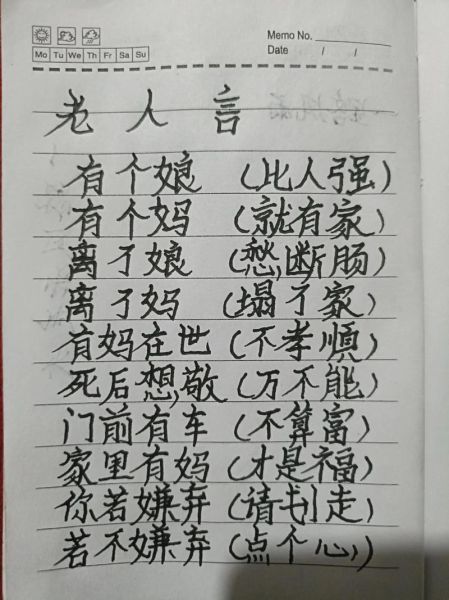 Memo No.
Mo Tu We Th Fr Sa Su
Date / /
老人言
有个娘（比人强）
有个妈（就有家）
离了娘（愁断肠）
离了妈（塌了家）
有妈在世（不孝顺）
死后想敬（万不能）
门前有车（不算富）
家里有妈（才是福）
你若嫌弃（请划走）
若不嫌弃（点个心）